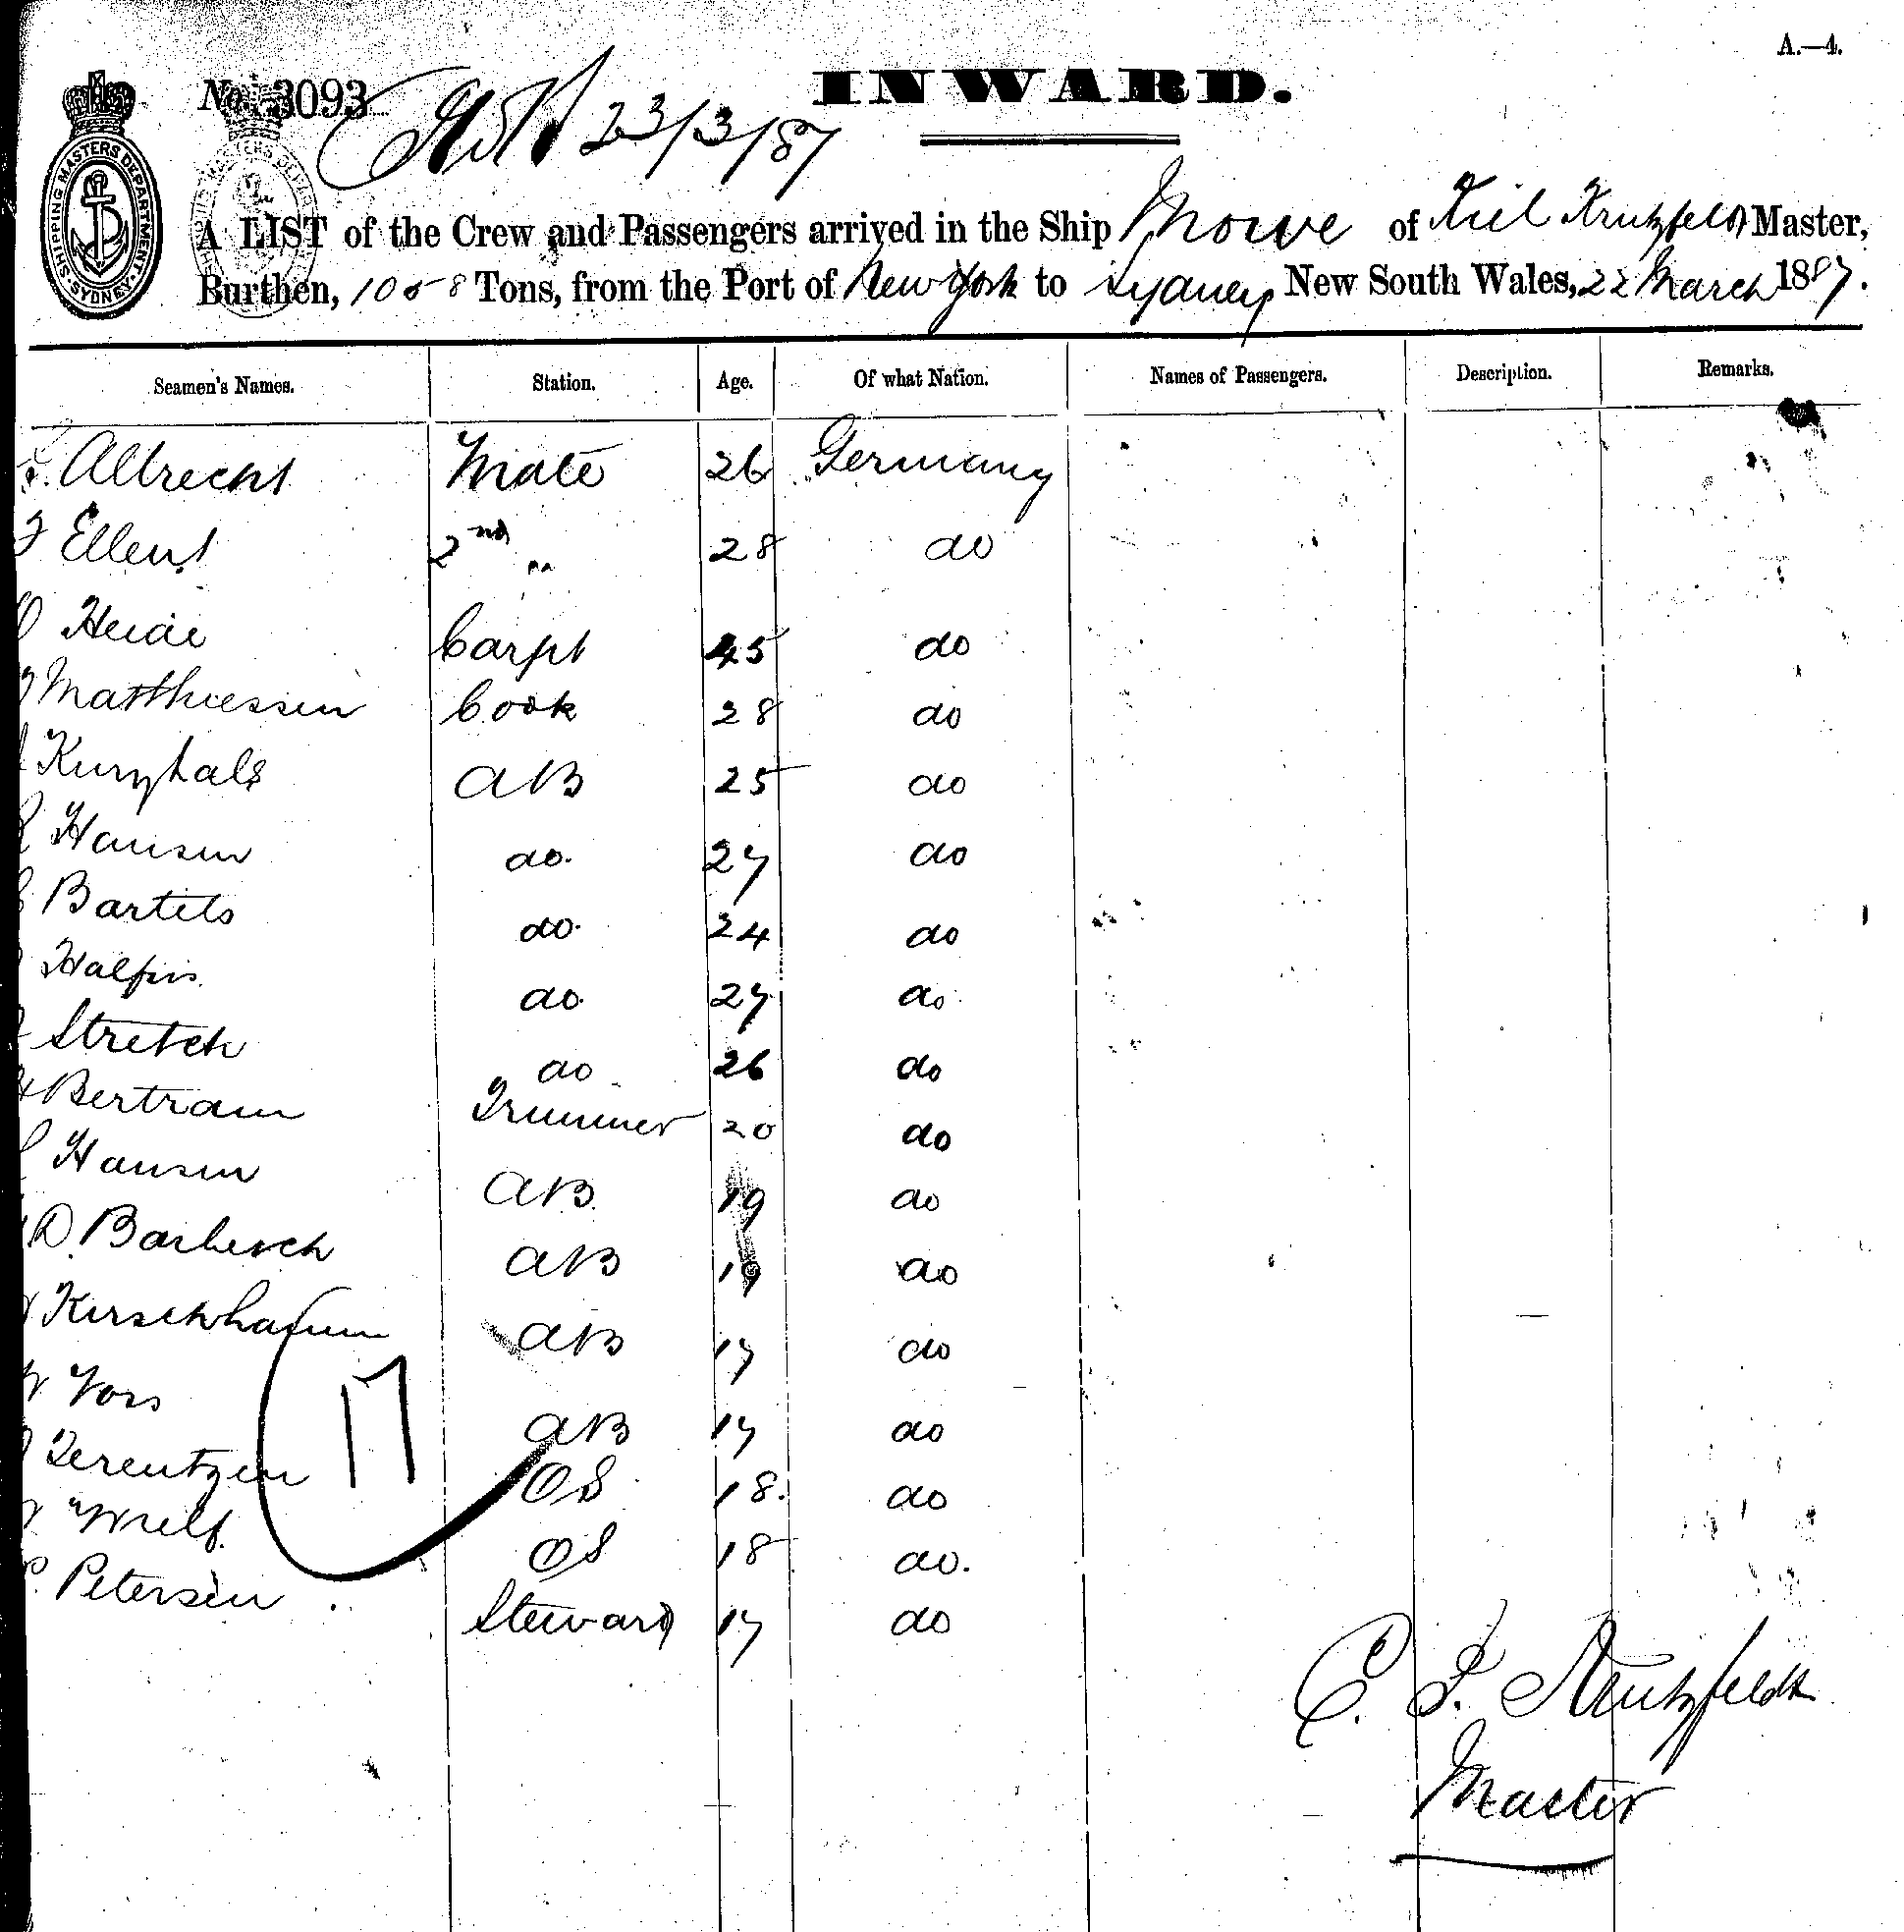 A.—4.
No. 3093
INWARD.
23/3/87
SHIPPING MASTERS DEPARTMENT SYDNEY
A LIST of the Crew and Passengers arrived in the Ship Mowe of Kiel Krutzfeldt Master,
Burthen, 1058 Tons, from the Port of New York to Sydney New South Wales, 22 March 1887.
Seamen's Names. Station. Age. Of what Nation. Names of Passengers. Description. Remarks.
Albrecht Mate 26 Germany
F Ellent 2nd 28 do
Heide Carpt 45 do
Matthiessen Cook 28 do
Kurzhals AB 25 do
Hansen do. 27 do
Bartels do. 24 do
Halfpis do. 27 do
Stretch do 26 do
Bertram Trimmer 20 do
Hansen AB 19 do
D. Barberech AB 19 do
Kirschbaum AB 17 do
Voss AB 17 do
Terentzen OS 18. do
Wulf. OS 18 do.
P. Petersen Steward 17 do
17
C. F. Krutzfeldt
Master